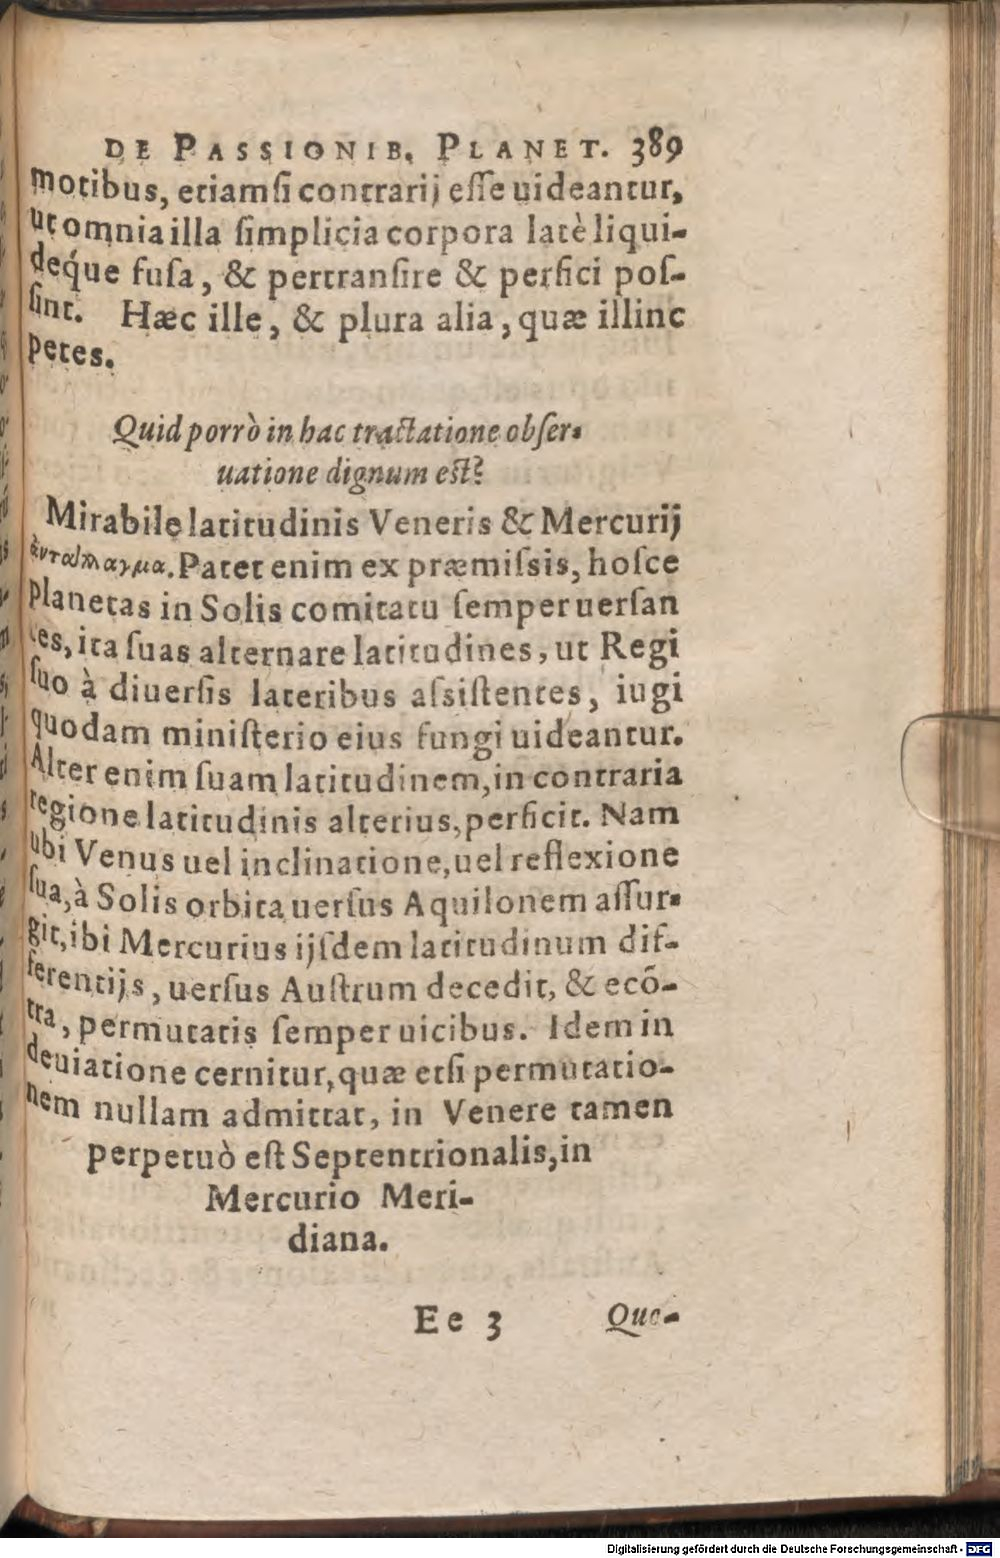 DE PASSIONIB. PLANET. 389
motibus, etiamsi contrarij esse uideantur,
ut omnia illa simplicia corpora latè liqui-
deq́ue fusa, & pertransire & perfici pos-
sint. Hæc ille, & plura alia, quæ illinc
petes.
Quid porrò in hac tractatione obser-
uatione dignum est?
Mirabile latitudinis Veneris & Mercurij
ἀντάλλαγμα. Patet enim ex præmissis, hosce
Planetas in Solis comitatu semper uersan
tes, ita suas alternare latitudines, ut Regi
suo à diuersis lateribus assistentes, iugi
quodam ministerio eius fungi uideantur.
Alter enim suam latitudinem, in contraria
regione latitudinis alterius, perficit. Nam
ubi Venus uel inclinatione, uel reflexione
sua, à Solis orbita uersus Aquilonem assur-
git, ibi Mercurius ijsdem latitudinum dif-
ferentijs, uersus Austrum decedit, & ecõ-
tra, permutatis semper uicibus. Idem in
deuiatione cernitur, quæ etsi permutatio-
nem nullam admittat, in Venere tamen
perpetuò est Septentrionalis, in
Mercurio Meri-
diana.
Ee 3 Quo-
Digitalisierung gefördert durch die Deutsche Forschungsgemeinschaft - DFG